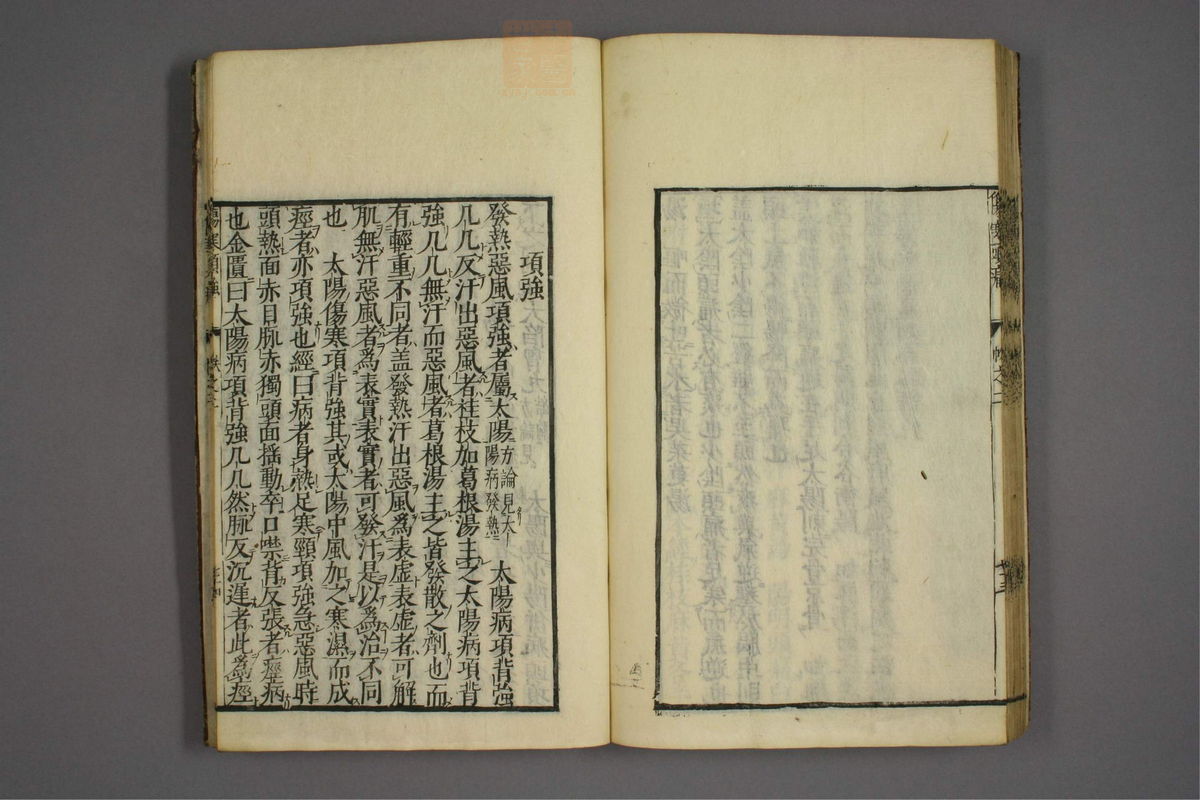 項強
發熱惡風項強者屬太陽方論見太陽病發熱　太陽病項背強
几几反汗出惡風者桂枝加葛根湯主之太陽病項背
強几几無汗而惡風者葛根湯主之皆發散之劑也而
有輕重不同者盖發熱汗出惡風爲表虛表虛者可解
肌無汗惡風者爲表實表實者可發汗是以爲治不同
也　太陽傷寒項背強其或太陽中風加之寒濕而成
痙者亦項強也經曰病者身熱足寒頸項強急惡風時
頭熱面赤目脉赤獨頭面揺動卒口噤背反張者痙病
也金匱曰太陽病項背強几几然脉反沉遲者此爲痙
傷寒項強
帙之二